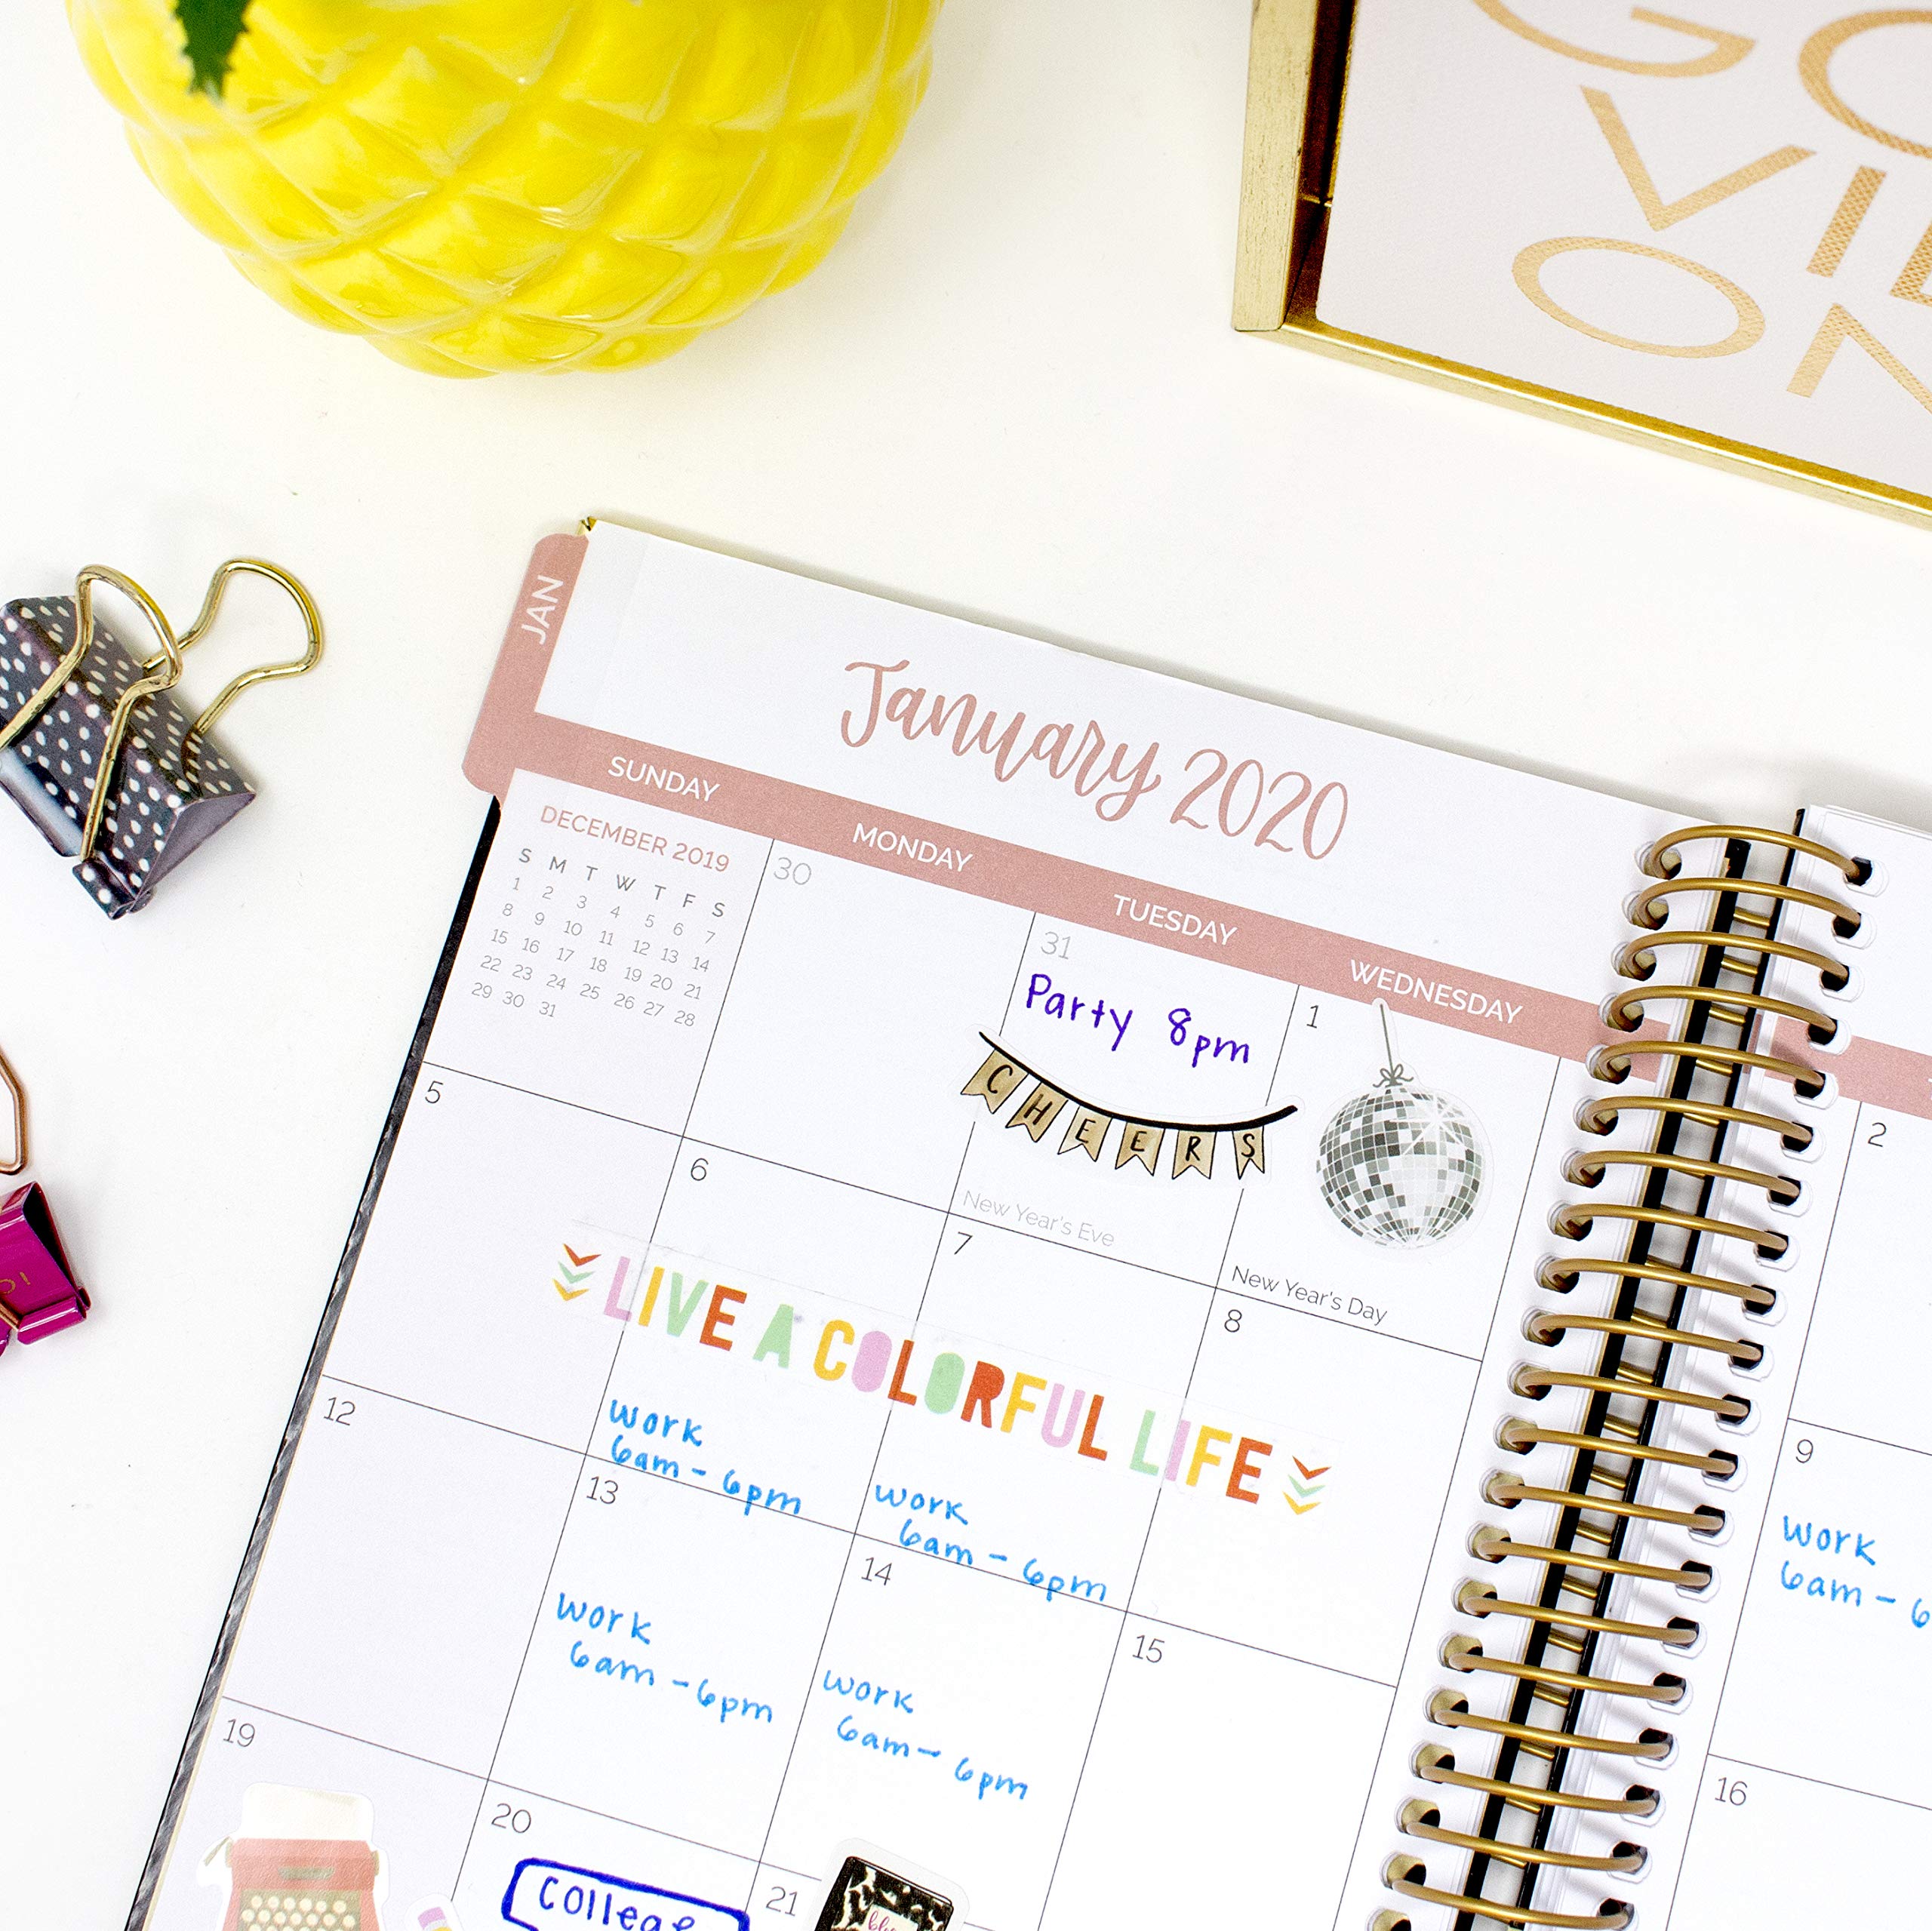 GO
VI
ON
JAN
January 2020
SUNDAY MONDAY TUESDAY WEDNESDAY
DECEMBER 2019
S M T W T F S
1 2 3 4 5 6 7
8 9 10 11 12 13 14
15 16 17 18 19 20 21
22 23 24 25 26 27 28
29 30 31
30
31
Party 8pm
CHEERS
New Year's Eve
1
New Year's Day
2
5
6
7
8
LIVE A COLORFUL LIFE
work
6am - 6pm
work
6am - 6pm
9
work
6am - 6
12
13
work
6am - 6pm
14
work
6am - 6pm
15
16
19
20
College
21